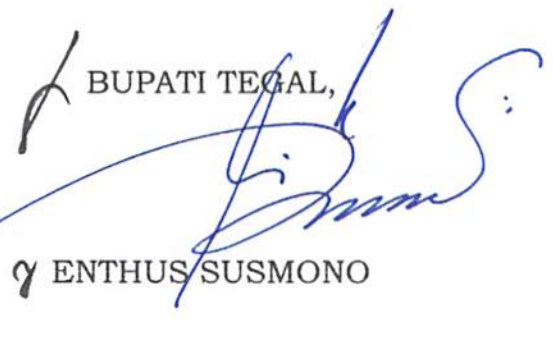 BUPATI TEGAL,
ENTHUS SUSMONO